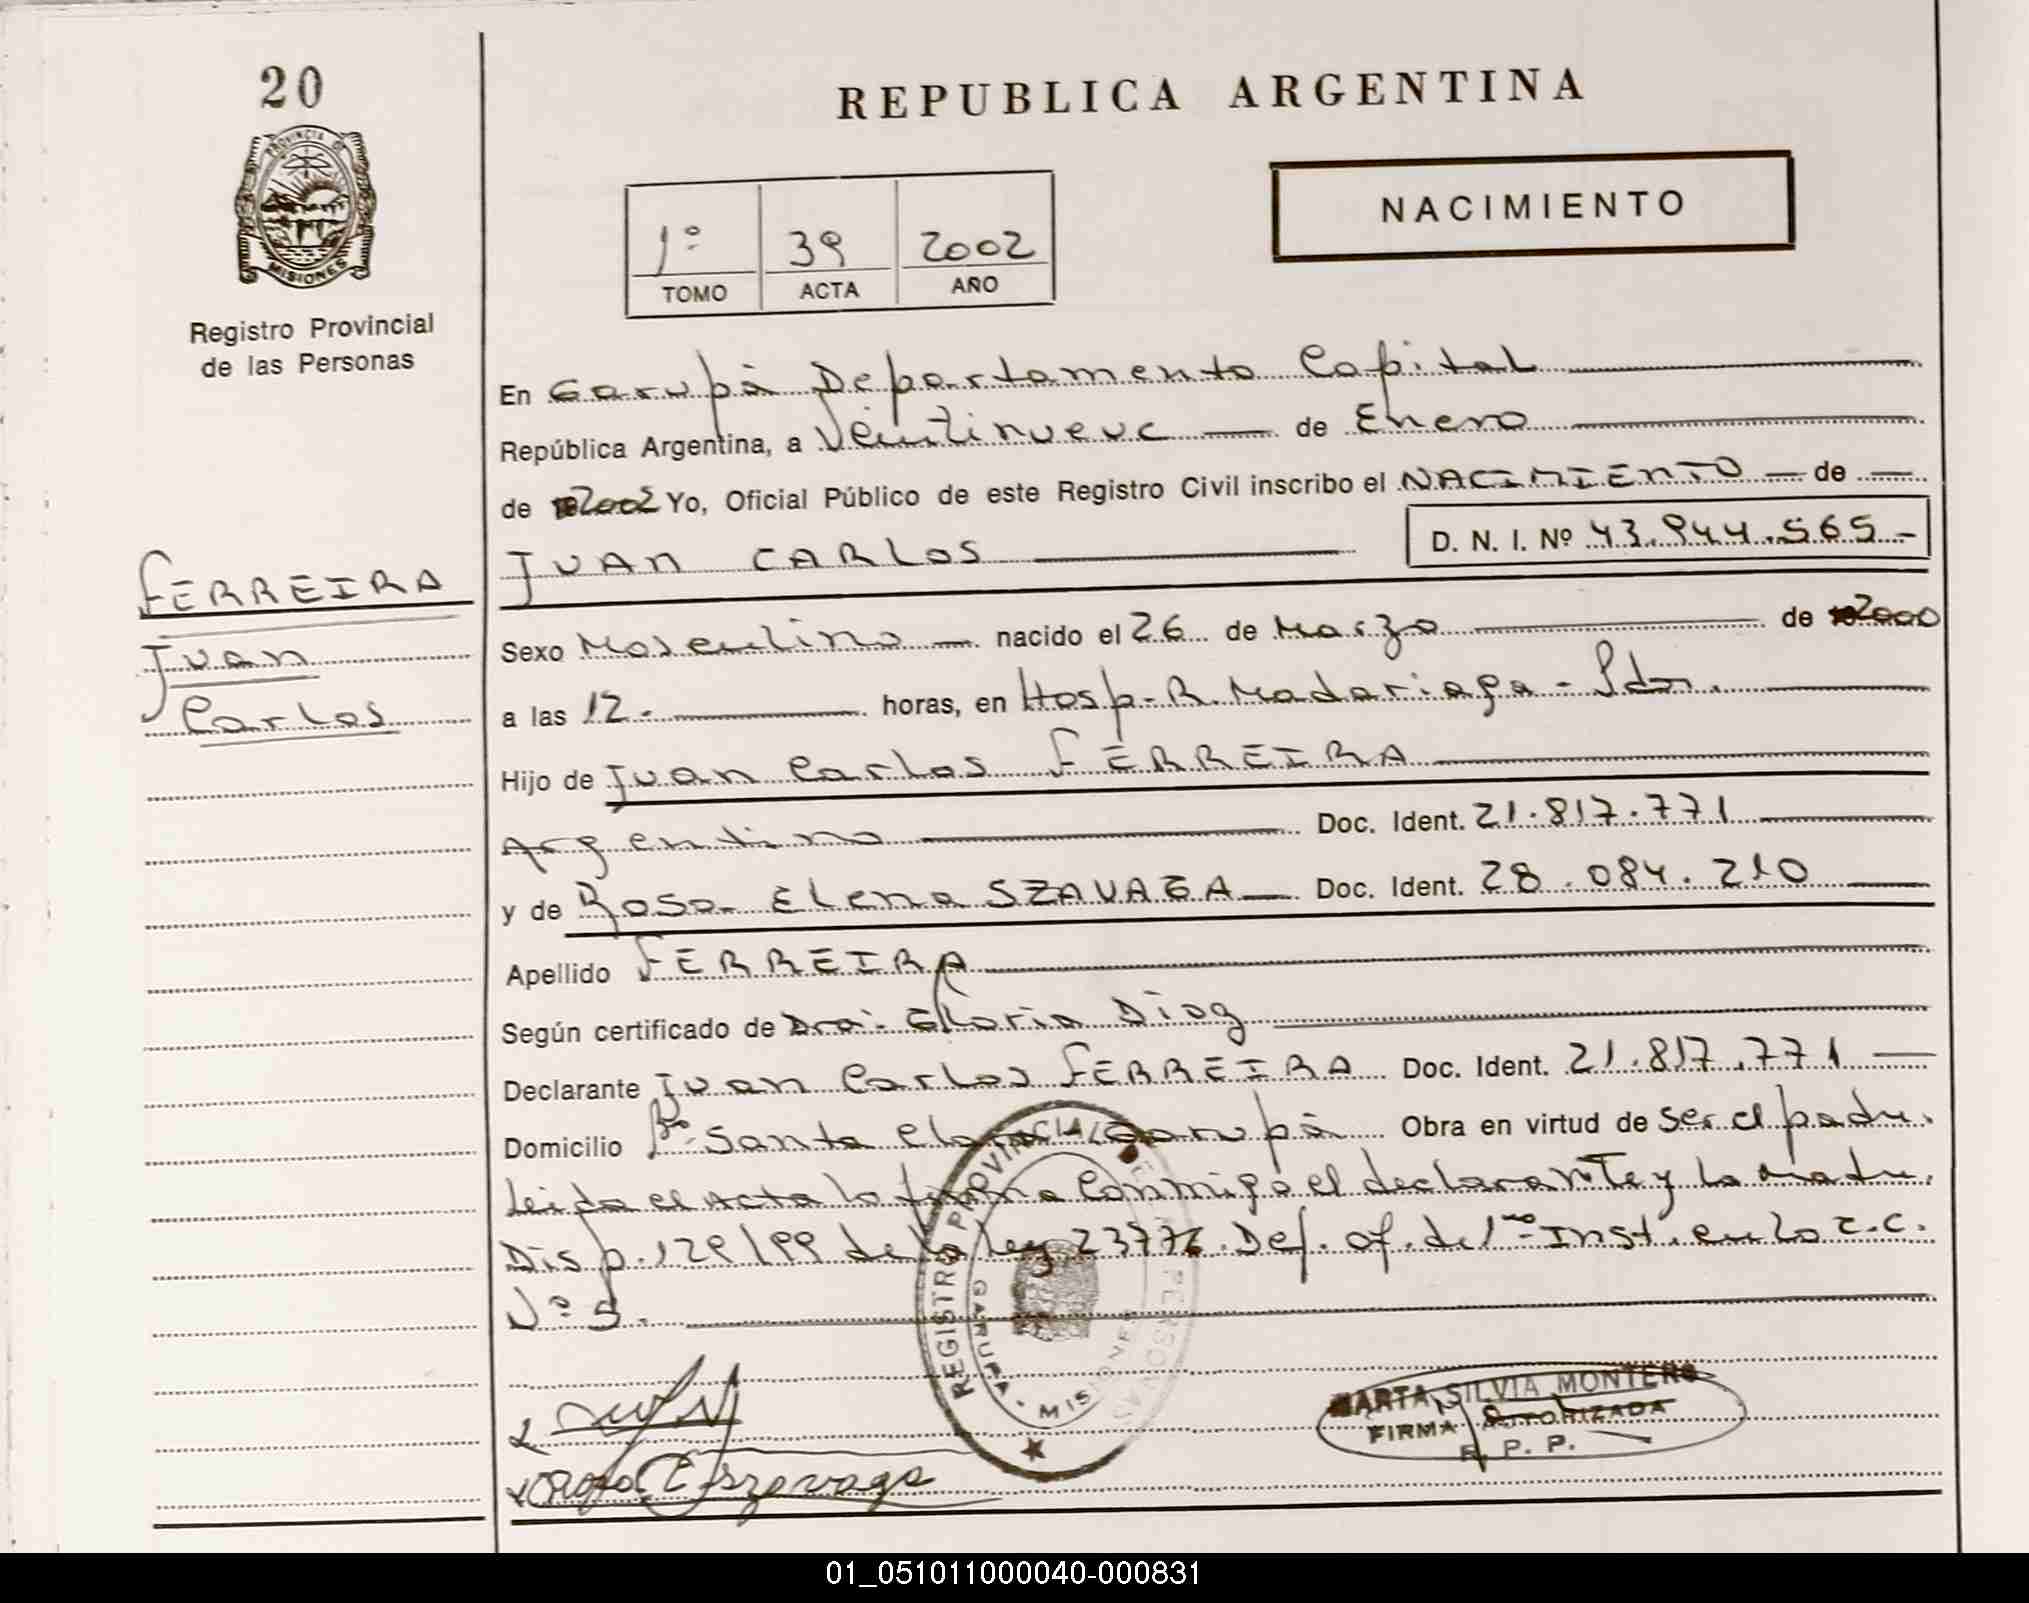 20
PROVINCIA DE
MISIONES
Registro Provincial
de las Personas
REPUBLICA ARGENTINA
NACIMIENTO
1º 39 2002
TOMO ACTA AÑO
En Garupà Departamento Capital
República Argentina, a Veintinueve de Enero
de 2002 Yo, Oficial Público de este Registro Civil inscribo el NACIMIENTO de
JUAN CARLOS D. N. I. Nº 43.944.565-
FERREIRA
Juan
Carlos
Sexo Masculino nacido el 26 de Marzo de 2000
a las 12.- horas, en Hosp-R.Madariaga-Pdas.
Hijo de Juan Carlos FERREIRA
Argentino Doc. Ident. 21.817.771
y de Rosa Elena SZAVAGA Doc. Ident. 28.084.210
Apellido FERREIRA
Según certificado de Dra. Gloria Diaz
Declarante Juan Carlos FERREIRA Doc. Ident. 21.817.771
Domicilio Bº Santa Clara Garupà Obra en virtud de ser el padre.
Leida el Acta la firma conmigo el declarante y la madre.
Disp. 129/99 de la Ley Def. of. de 1ra Inst. en lo C.C.
Nº 5.
REGISTRO PROVINCIAL DE LAS PERSONAS
GARUPA MISIONES
MARTA SILVIA MONTERO
FIRMA AUTORIZADA
R. P. P.
01_051011000040-000831